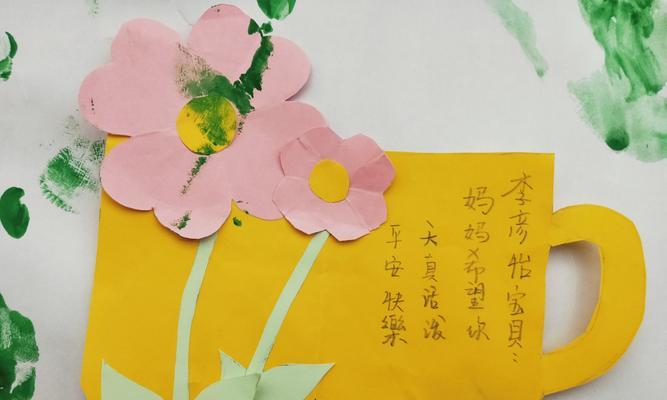 李彦怡宝貝：
妈妈希望你
天真活泼
平安快樂